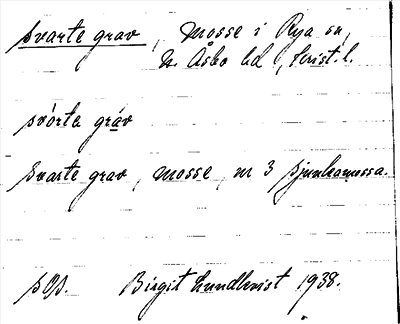 Svarte grav, mosse i Rya sn,
N. Åsbo hd, Krist. l.
svórte gráv
Svarte grav, mosse, nr 3 Sjunkamossa.
sOp. Birgit Lundkvist 1938.